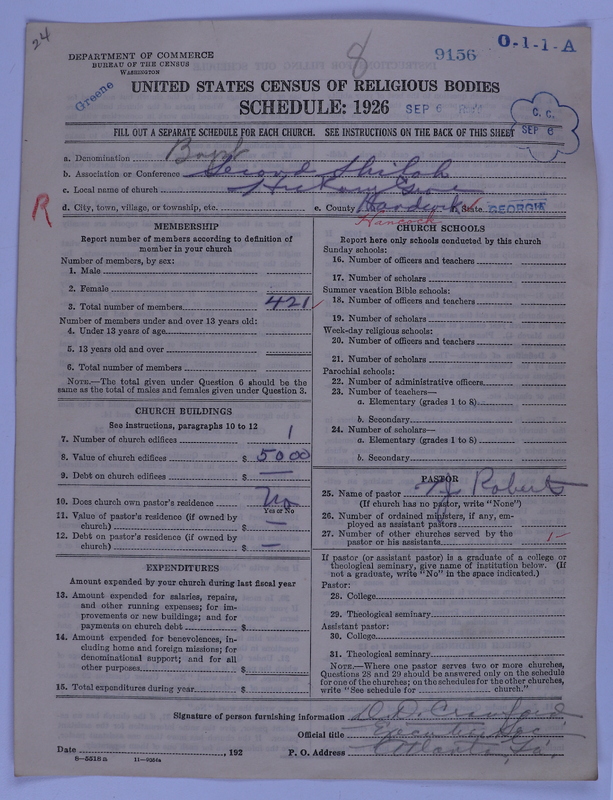 24
8
9156
O-1-1-A
DEPARTMENT OF COMMERCE
BUREAU OF THE CENSUS
WASHINGTON
Greene
UNITED STATES CENSUS OF RELIGIOUS BODIES
SCHEDULE: 1926
SEP 6
C. C.
SEP 6
FILL OUT A SEPARATE SCHEDULE FOR EACH CHURCH. SEE INSTRUCTIONS ON THE BACK OF THIS SHEET
a. Denomination Bapt
b. Association or Conference Second Shiloh
c. Local name of church Hickory Grove
R
d. City, town, village, or township, etc.
e. County Hardwick State GEORGIA
Hancock
MEMBERSHIP
Report number of members according to definition of
member in your church
Number of members, by sex:
1. Male
2. Female
3. Total number of members 421
Number of members under and over 13 years old:
4. Under 13 years of age
5. 13 years old and over
6. Total number of members
NOTE.—The total given under Question 6 should be the
same as the total of males and females given under Question 3.
CHURCH BUILDINGS
See instructions, paragraphs 10 to 12
7. Number of church edifices 1
8. Value of church edifices $ 5000
9. Debt on church edifices $ —
10. Does church own pastor's residence No
Yes or No
11. Value of pastor's residence (if owned by
church) $ —
12. Debt on pastor's residence (if owned by
church) $ —
EXPENDITURES
Amount expended by your church during last fiscal year
13. Amount expended for salaries, repairs,
and other running expenses; for im-
provements or new buildings; and for
payments on church debt $
14. Amount expended for benevolences, in-
cluding home and foreign missions; for
denominational support; and for all
other purposes $
15. Total expenditures during year $
CHURCH SCHOOLS
Report here only schools conducted by this church
Sunday schools:
16. Number of officers and teachers
17. Number of scholars
Summer vacation Bible schools:
18. Number of officers and teachers
19. Number of scholars
Week-day religious schools:
20. Number of officers and teachers
21. Number of scholars
Parochial schools:
22. Number of administrative officers
23. Number of teachers—
a. Elementary (grades 1 to 8)
b. Secondary
24. Number of scholars—
a. Elementary (grades 1 to 8)
b. Secondary
PASTOR
25. Name of pastor Roberts
(If church has no pastor, write "None")
26. Number of ordained ministers, if any, em-
ployed as assistant pastors
27. Number of other churches served by the
pastor or his assistants 1
If pastor (or assistant pastor) is a graduate of a college or
theological seminary, give name of institution below. (If
not a graduate, write "No" in the space indicated.)
Pastor:
28. College
29. Theological seminary
Assistant pastor:
30. College
31. Theological seminary
NOTE.—Where one pastor serves two or more churches,
Questions 28 and 29 should be answered only on the schedule
for one of the churches; on the schedules for the other churches,
write "See schedule for church."
Signature of person furnishing information D. D. Crawford
Official title Executive Sec.
Date , 192
P. O. Address Atlanta, Ga.
8—5518a 11—9364a